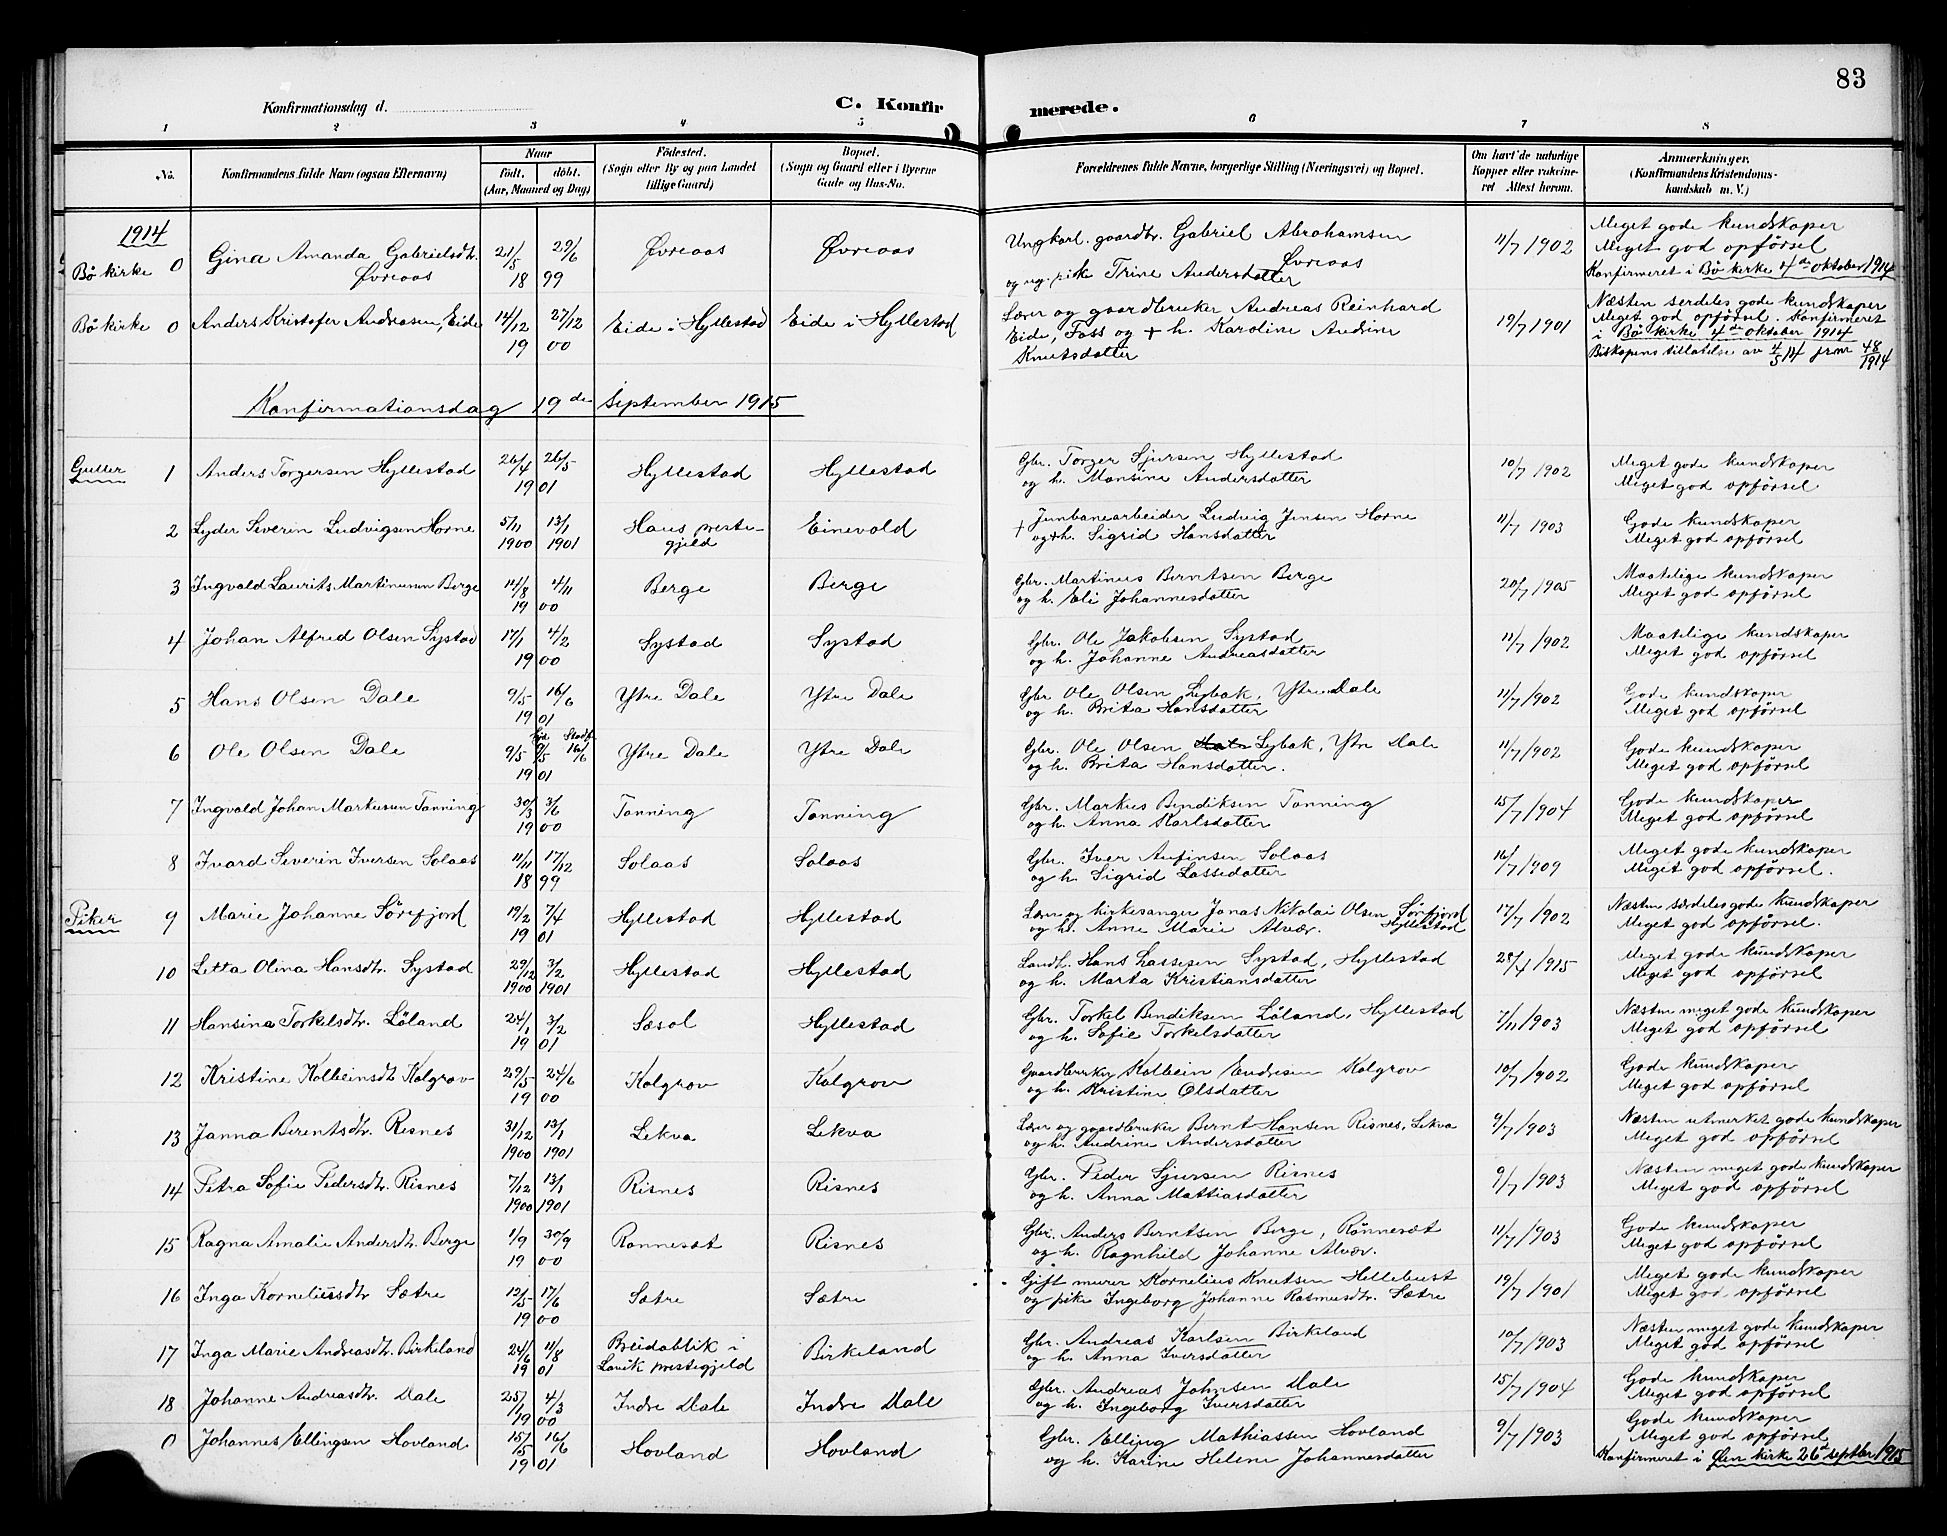 83
Konfirmationsdag d. C. Konfirmerede.
1 2 3 4 5 6 7 8
No. Konfirmandens fulde Navn (ogsaa Efternavn) Naar født. døbt. (Aar, Maaned og Dag) Fødested. (Sogn eller By og paa Landet tillige Gaard) Bopæl. (Sogn og Gaard eller i Byerne Gade og Hus-No. Forældrenes fulde Navne, borgerlige Stilling (Næringsvei) og Bopæl. Om havt de naturlige Kopper eller vakcineret Attest herom. Anmerkninger. (Konfirmandens Kristendomskundskab m. V.)
1914
Bø kirke 0 Gina Amanda Gabrielsdtr. Øvreaas 21/5 29/6 1899 Øvreaas Øvreaas Ungkarl. gaardbr. Gabriel Abrahamsen Øvreaas og ug. pike Trine Andersdatter 11/7 1902 Meget gode kundskaper Meget god opförsel Konfirmeret i Bø kirke 4de oktober 1914
Bø kirke 0 Anders Kristofer Andreasen, Eide 14/12 27/12 1900 Eide i Hyllestad Eide i Hyllestad Lærer og gaardbruker Andreas Reinhard Eide, Foss og + h. Karoline Audine Knutsdatter 19/7 1901 Næsten serdeles gode kundskaper Meget god opförsel. Konfirmeret i Bø kirke 4de oktober 1914 Biskopens tillatelse av 4/5 14 jrnr 48/1914
Konfirmationsdag 19de September 1915
Gutter 1 Anders Torgersen Hyllestad 26/4 26/5 1901 Hyllestad Hyllestad Gbr. Torger Sjursen Hyllestad og h. Mansine Andersdatter 10/7 1902 Meget gode kundskaper Meget god opförsel
2 Lyder Severin Ludvigsen Horne 5/11 1900 13/1 1901 Haus prestegjeld Einevold + Junbanearbeider Ludvig Jensen Horne og + h. Sigrid Hansdatter 11/7 1903 Gode kundskaper Meget god opförsel
3 Ingvald Laurits Martinussen Berge 12/8 4/11 1900 Berge Berge Gbr. Martinus Berntsen Berge og h. Eli Johannesdatter 20/7 1905 Maatelige kundskaper Meget god opförsel
4 Johan Alfred Olsen Systad 17/1 4/2 1900 Systad Systad Gbr. Ole Jakobsen Systad og h. Johanne Andreasdatter 11/7 1902 Maatelige kundskaper Meget god opförsel
5 Hans Olsen Dale 9/5 16/6 1901 Ytre Dale Ytre Dale Gbr Ole Olsen Lybak, Ytre Dale og h. Brita Hansdatter 11/7 1902 Gode kundskaper Meget god opförsel
6 Ole Olsen Dale 9/5 9/5 Stadf. 16/6 1901 Ytre Dale Ytre Dale Gbr. Ole Olsen Lybak, Ytre Dale og h. Brita Hansdatter. 11/7 1902 Gode kundskaper Meget god opförsel
7 Ingvald Johan Markusen Tanning 30/3 3/6 1900 Tanning Tanning Gbr. Markus Bendiksen Tanning og h. Anna Karlsdatter 15/7 1904 Gode kundskaper Meget god opförsel
8 Ivard Severin Iversen Solaas 11/11 17/12 1899 Solaas Solaas Gbr. Iver Anfinsen Solaas og h. Sigrid Lassedatter 16/7 1909 Meget gode kundskaper Meget god opförsel.
Piker 9 Marie Johanne Sörefjord 19/2 7/4 1901 Hyllestad Hyllestad Lærer og kirkesanger Jonas Nikolai Olsen Sörfjord og h. Anne Marie Alvær. Hyllestad 17/7 1902 Næsten særdeles gode kundskaper Meget god opförsel.
10 Letta Olina Hansdtr. Systad 29/12 1900 3/2 1901 Hyllestad Hyllestad Landh. Hans Lassesen Systad, Hyllestad og h. Marta Kristiansdatter 28/4 1915 Meget gode kundskaper Meget god opförsel
11 Hansina Torkelsdtr. Löland 24/1 3/2 1901 Sæsol Hyllestad Gbr. Torkel Bendiksen Löland, Hyllestad og h. Sofie Torkelsdatter 7/11 1903 Næsten meget gode kundskaper Meget god opförsel
12 Kristine Kolbeinsdtr Kolgrov 29/5 24/6 1900 Kolgrov Kolgrov Gaardbruker Kolbein Endresen Kolgrov og h. Kristine Olsdatter 10/7 1902 Gode kundskaper Meget god opförsel
13 Janna Berentsdtr. Risnes 31/12 1900 13/1 1901 Lekva Lekva Lærer og gaardbruker Bernt Hansen Risnes, Lekva og h. Andrine Andersdatter 9/7 1903 Næsten utmerket gode kundskaper Meget god opförsel
14 Petra Sofie Pedersdtr. Risnes 7/12 1900 13/1 1901 Risnes Risnes Gbr. Peder Sjursen Risnes og h. Anna Mattiasdatter 9/7 1903 Næsten meget gode kundskaper Meget god opförsel
15 Ragna Amalie Andersdtr. Berge 1/9 30/9 1900 Rønnesæt Risnes Gbr. Anders Berntsen Berge, Rønnesæt og h. Ragnhild Johanne Alvær. 11/7 1903 Gode kundskaper Meget god opförsel
16 Inga Korneliusdtr Sætre 12/5 17/6 1900 Sætre Sætre Gift murer Kornelius Knutsen Hellebust og pike Ingeborg Johanne Rasmusdtr. Sætre 19/7 1901 Meget gode kundskaper Meget god opförsel
17 Inga Marie Andreasdtr Birkeland 24/6 11/8 1901 Breidablik i Lavik prestegjeld Birkeland Gbr. Andreas Karlsen Birkeland og h. Anna Iversdatter 10/7 1903 Næsten meget gode kundskaper Meget god opförsel
18 Johanne Andreasdtr. Dale 25/1 4/3 1900 Indre Dale Indre Dale Gbr. Andreas Johnsen Dale og h. Ingeborg Iversdatter 15/7 1904 Gode kundskaper Meget god opförsel
0 Johannes Ellingsen Hovland 15/5 16/6 1901 Hovland Hovland Gbr. Elling Mathiassen Hovland og h. Karine Helene Johannesdatter 9/7 1903 Gode kundskaper Meget god opförsel Konfirmeret i Øen kirke 26de septbr 1915